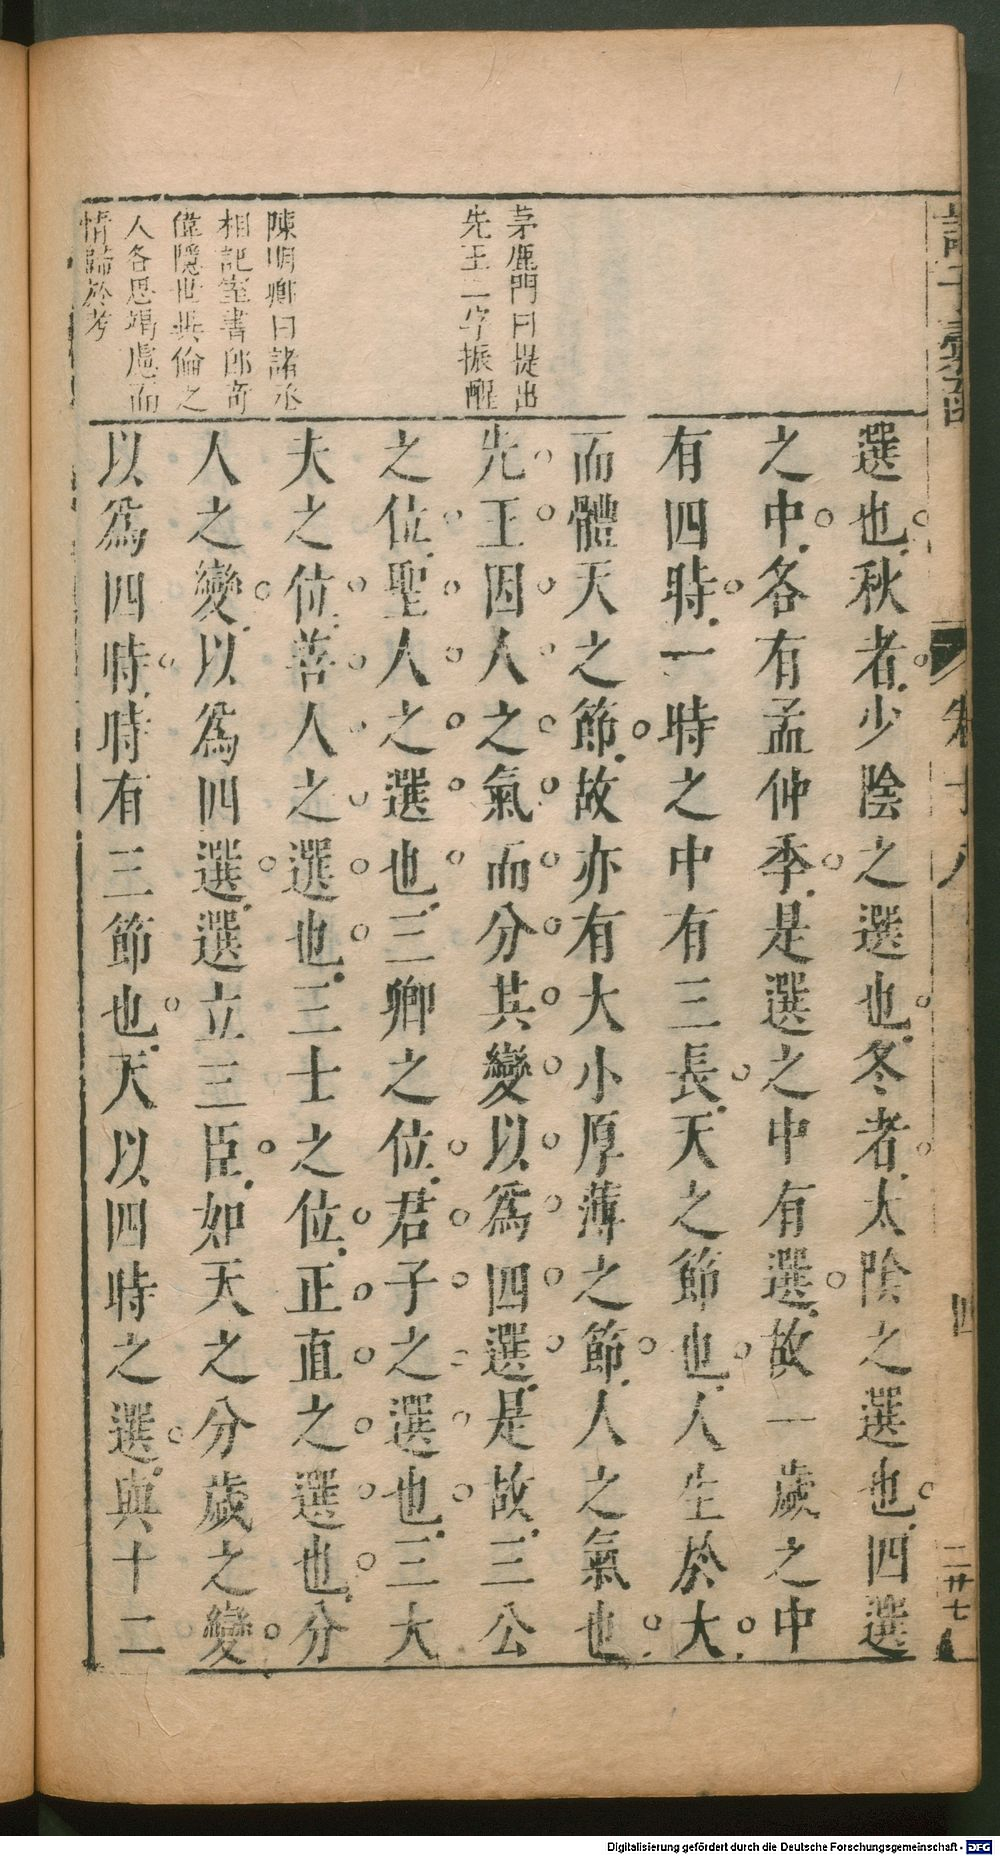 茅鹿門曰提出
先王二字振醒
陳明卿曰諸丞
相記室書郎奇
偉隱世與倫之
人各思竭慮而
情歸於考
選也秋者少陰之選也冬者太陰之選也四選
之中各有孟仲季是選之中有選故一歲之中
有四時一時之中有三長天之節也人生於大
而體天之節故亦有大小厚薄之節人之氣也
先王因人之氣而分其變以爲四選是故三公
之位聖人之選也三卿之位君子之選也三大
夫之位善人之選也三士之位正直之選也分
人之變以爲四選選立三臣如天之分歲之變
以爲四時時有三節也天以四時之選與十二
四
二廿七
Digitalisierung gefördert durch die Deutsche Forschungsgemeinschaft - DFG